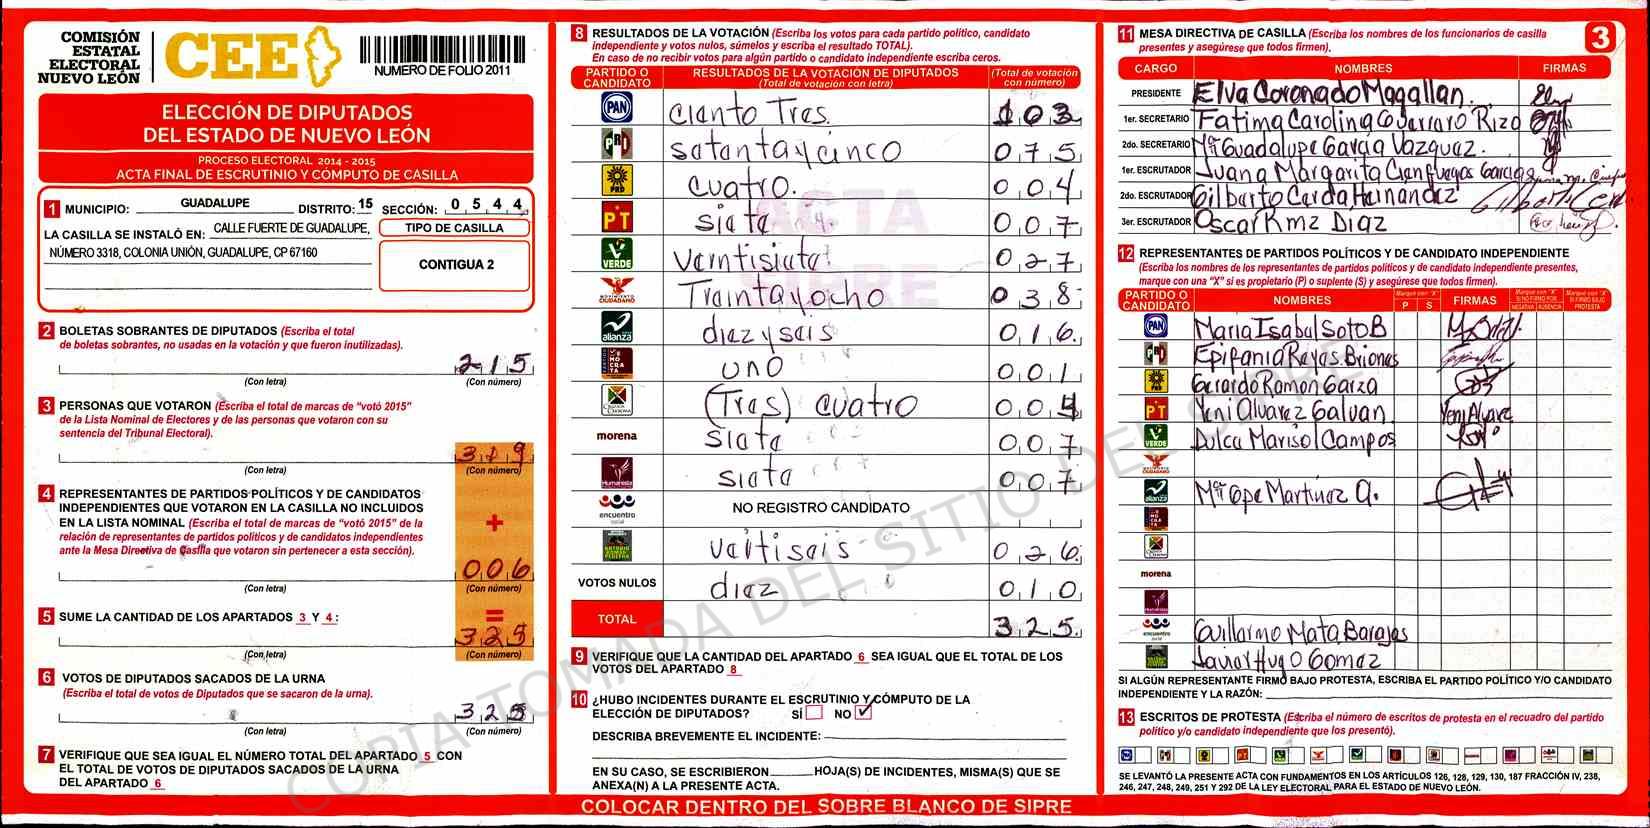 COMISIÓN
ESTATAL
ELECTORAL
NUEVO LEÓN
CEE
NUMERO DE FOLIO 2011
ELECCIÓN DE DIPUTADOS
DEL ESTADO DE NUEVO LEÓN
PROCESO ELECTORAL 2014 - 2015
ACTA FINAL DE ESCRUTINIO Y CÓMPUTO DE CASILLA
1 MUNICIPIO: GUADALUPE DISTRITO: 15 SECCIÓN: 0 5 4 4
LA CASILLA SE INSTALÓ EN: CALLE FUERTE DE GUADALUPE,
NÚMERO 3318, COLONIA UNIÓN, GUADALUPE, CP 67160
TIPO DE CASILLA
CONTIGUA 2
2 BOLETAS SOBRANTES DE DIPUTADOS (Escriba el total
de boletas sobrantes, no usadas en la votación y que fueron inutilizadas).
2 1 5
(Con letra) (Con número)
3 PERSONAS QUE VOTARON (Escriba el total de marcas de “votó 2015”
de la Lista Nominal de Electores y de las personas que votaron con su
sentencia del Tribunal Electoral).
3 1 9
(Con letra) (Con número)
4 REPRESENTANTES DE PARTIDOS POLÍTICOS Y DE CANDIDATOS
INDEPENDIENTES QUE VOTARON EN LA CASILLA NO INCLUIDOS
EN LA LISTA NOMINAL (Escriba el total de marcas de “votó 2015” de la
relación de representantes de partidos políticos y de candidatos independientes
ante la Mesa Directiva de Casilla que votaron sin pertenecer a esta sección).
+
0 0 6
(Con letra) (Con número)
5 SUME LA CANTIDAD DE LOS APARTADOS 3 Y 4 :
=
3 2 5
(Con letra) (Con número)
6 VOTOS DE DIPUTADOS SACADOS DE LA URNA
(Escriba el total de votos de Diputados que se sacaron de la urna).
3 2 5
(Con letra) (Con número)
7 VERIFIQUE QUE SEA IGUAL EL NÚMERO TOTAL DEL APARTADO 5 CON
EL TOTAL DE VOTOS DE DIPUTADOS SACADOS DE LA URNA
DEL APARTADO 6
8 RESULTADOS DE LA VOTACIÓN (Escriba los votos para cada partido político, candidato
independiente y votos nulos, súmelos y escriba el resultado TOTAL).
En caso de no recibir votos para algún partido o candidato independiente escriba ceros.
PARTIDO O CANDIDATO RESULTADOS DE LA VOTACION DE DIPUTADOS (Total de votación con letra) (Total de votación con número)
PAN ciento Tres. 1 0 3
PRI setentaycinco 0 7 5
PRD cuatro. 0 0 4
PT siete 0 0 7
VERDE Veintisiete 0 2 7
MOVIMIENTO CIUDADANO Treintayocho 0 3 8
alianza diezyseis 0 1 6
DEMOCRATA uno 0 0 1
CRUZADA CIUDADANA (Tres) cuatro 0 0 4
morena siete 0 0 7
Humanista siete 0 0 7
encuentro social NO REGISTRO CANDIDATO
veitiseis 0 2 6
VOTOS NULOS diez 0 1 0
TOTAL 3 2 5
9 VERIFIQUE QUE LA CANTIDAD DEL APARTADO 6 SEA IGUAL QUE EL TOTAL DE LOS
VOTOS DEL APARTADO 8
10 ¿HUBO INCIDENTES DURANTE EL ESCRUTINIO Y CÓMPUTO DE LA
ELECCIÓN DE DIPUTADOS? SÍ NO ✓
DESCRIBA BREVEMENTE EL INCIDENTE:
EN SU CASO, SE ESCRIBIERON HOJA(S) DE INCIDENTES, MISMA(S) QUE SE
ANEXA(N) A LA PRESENTE ACTA.
11 MESA DIRECTIVA DE CASILLA (Escriba los nombres de los funcionarios de casilla
presentes y asegúrese que todos firmen).
3
CARGO NOMBRES FIRMAS
PRESIDENTE Elva Coronado Magallan.
1er. SECRETARIO Fatima Carolina Guerrero Rizo
2do. SECRETARIO Mª Guadalupe Garcia Vazquez.
1er. ESCRUTADOR Juana Margarita Cienfuegos Garcias
2do. ESCRUTADOR Gilberto Cerda Hernandez
3er. ESCRUTADOR Oscar Rmz Diaz
12 REPRESENTANTES DE PARTIDOS POLÍTICOS Y DE CANDIDATO INDEPENDIENTE
(Escriba los nombres de los representantes de partidos políticos y de candidato independiente presentes,
marque con una “X” si es propietario (P) o suplente (S) y asegúrese que todos firmen).
PARTIDO O CANDIDATO NOMBRES Marque con "X" P S FIRMAS Marque con "X" SI NO FIRMÓ POR: NEGATIVA AUSENCIA Marque con "X" SI FIRMÓ BAJO PROTESTA
PAN Maria Isabel Soto B
PRI Epifania Reyes Briones
PRD Gerardo Ramon Garza
PT Yeni Alvarez Galvan. Yeni Alvarez
VERDE Dulce Marisol Campos
CIUDADANO
alianza Mª Gpe Martinez A.
morena
Humanista
encuentro social Guillermo Mata Barajas
Javier Hugo Gomez
SI ALGÚN REPRESENTANTE FIRMO BAJO PROTESTA, ESCRIBA EL PARTIDO POLÍTICO Y/O CANDIDATO
INDEPENDIENTE Y LA RAZÓN:
13 ESCRITOS DE PROTESTA (Escriba el número de escritos de protesta en el recuadro del partido
político y/o candidato independiente que los presentó).
SE LEVANTÓ LA PRESENTE ACTA CON FUNDAMENTOS EN LOS ARTÍCULOS 126, 128, 129, 130, 187 FRACCIÓN IV, 238,
246, 247, 248, 249, 251 Y 292 DE LA LEY ELECTORAL PARA EL ESTADO DE NUEVO LEÓN.
COLOCAR DENTRO DEL SOBRE BLANCO DE SIPRE
ACTA
SIPRE
COPIA TOMADA DEL SITIO DEL SIPRE